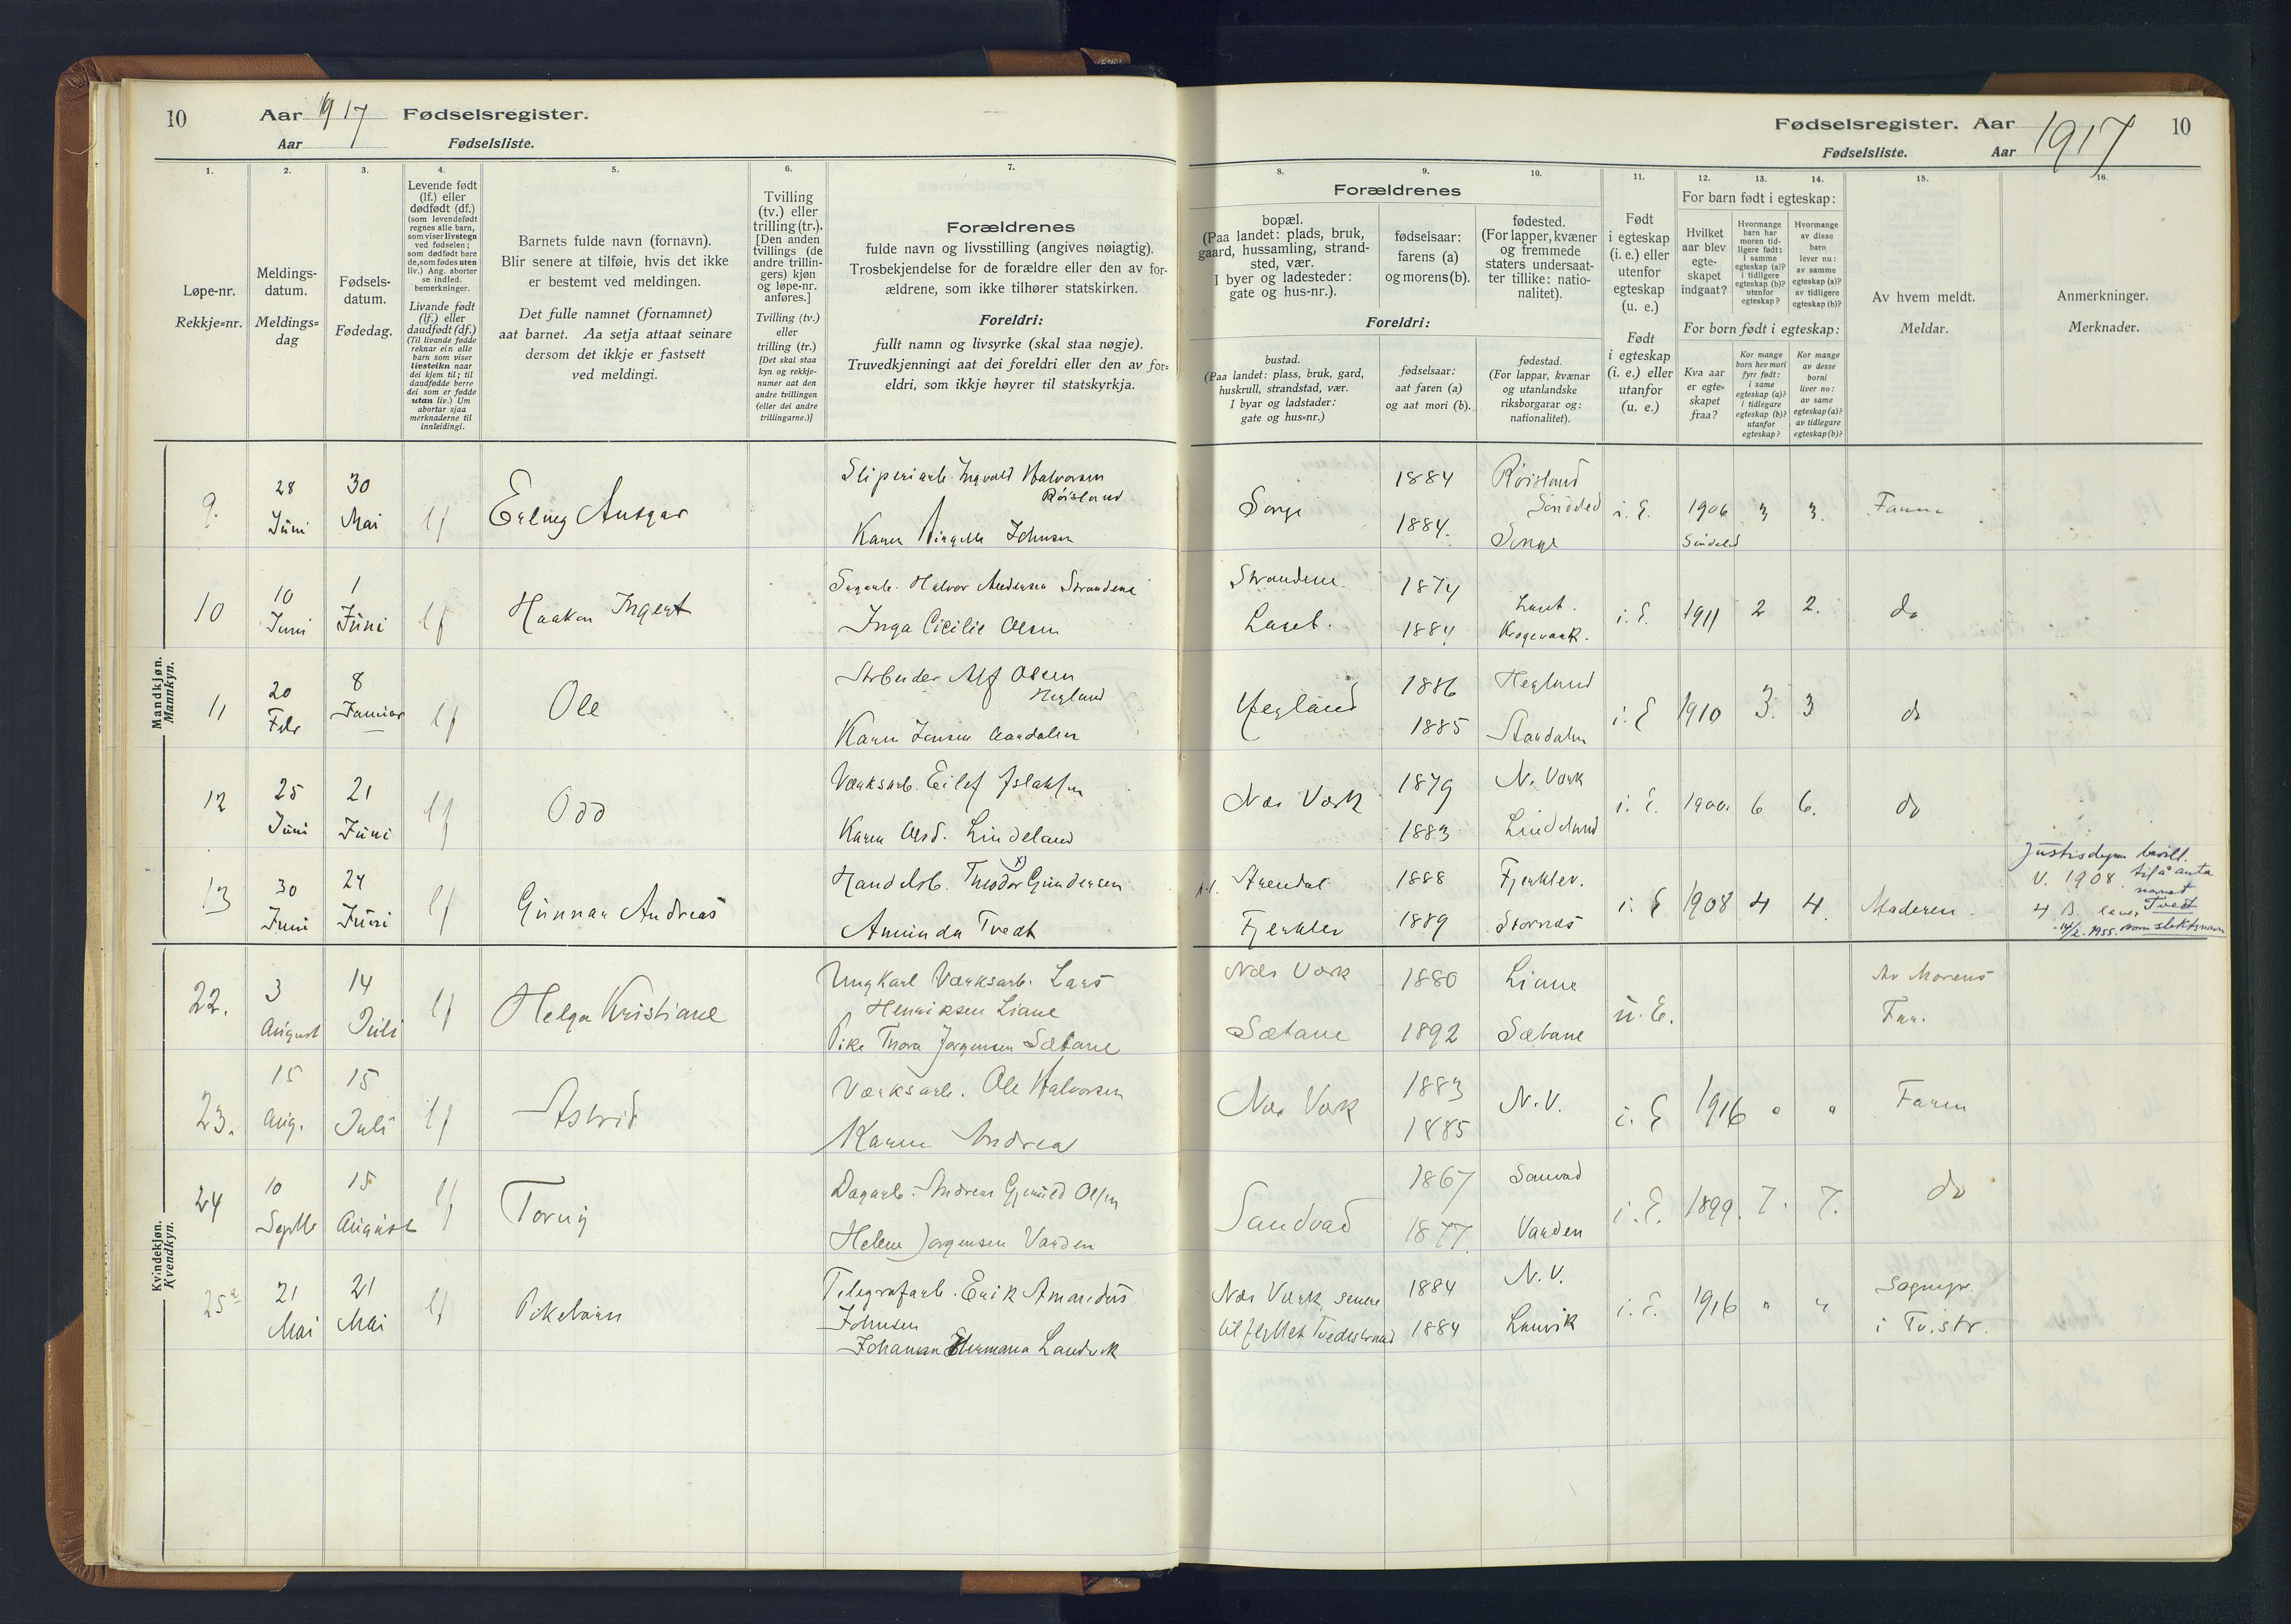 10
Aar 1917 Fødselsregister.
Aar Fødselsliste.
1.
2.
3.
4.
5.
6.
7.
Løpe-nr.
Rekkje=nr.
Meldings-
datum.
Meldings=
dag
Fødsels-
datum.
Fødedag.
Levende født
(lf.) eller
dødfødt (df.)
(som levendefødt
regnes alle barn,
som viser livstegn
ved fødselen;
som dødfødt bare
de, som fødes uten
liv.) Ang. aborter
se indled.
bemerkninger.
Livande født
(lf.) eller
daudfødt (df.)
(Til livande fødde
reknar ein alle
barn som viser
livsteikn naar
dei kjem til; til
daudfødde berre
dei som er fødde
utan liv.) Um
abortar sjaa
merknaderne til
innleidingi.
Barnets fulde navn (fornavn).
Blir senere at tilføie, hvis det ikke
er bestemt ved meldingen.
Det fulle namnet (fornamnet)
aat barnet. Aa setja attaat seinare
dersom det ikkje er fastsett
ved meldingi.
Tvilling
(tv.) eller
trilling (tr.).
[Den anden
tvillings (de
andre trillin-
gers) kjøn
og løpe-nr.
anføres.]
Tvilling (tv.)
eller
trilling (tr.)
[Det skal staa
kyn og rekkje-
numer aat den
andre tvillingen
(eller dei andre
trillingarne.)]
Forældrenes
fulde navn og livsstilling (angives nøiagtig).
Trosbekjendelse for de forældre eller den av for-
ældrene, som ikke tilhører statskirken.
Foreldri:
fullt namn og livsyrke (skal staa nøgje).
Truvedkjenningi aat dei foreldri eller den av for=
eldri, som ikkje høyrer til statskyrkja.
Mandkjøn.
Mannkyn.
9. 28 Juni 30 Mai lf Erling Ansgar
Sliperiarb. Ingvald Halvorsen
Røisland
Karen Johnsen
10 10 Juni 1 Juni lf Haakon Ingert
Sagarb. Halvor Andersen Strandene
Inga Cicilie Olsen
11 20 Febr 8 Januar lf Ole
Arbeider Alf Olsen
Hegland
Karen Jensen Aardalen
12 25 Juni 21 Juni lf Odd
Værksarb. Eilef Islaksen
Karen Olsd. Lindeland
13 30 Juni 24 Juni lf Gunnar Andreas
Handelsb. Theodor Gundersen
Aminda Tvedt
Kvindekjøn.
Kvendkyn.
22. 3 August 14 Juli lf Helga Kristiane
Ungkarl Værksarb. Lars
Henriksen Liane
Pike Thora Jørgensen Sætane
23. 15 Aug. 15 Juli lf Astrid
Værksarb. Ole Halvorsen
Karen Andrea
24 10 Septb 15 August lf Torny
Dagarb. Andreas Olsen
Helene Jørgensen Varden
25a 21 Mai 21 Mai lf Pikebarn
Telegrafarb. Erik Amandus
Johnsen
Johanne Hermana Landvik
Fødselsregister. Aar 1917 10
Fødselsliste. Aar
8.
9.
10.
11.
12.
13.
14.
15.
16.
Forældrenes
bopæl.
(Paa landet: plads, bruk,
gaard, hussamling, strand-
sted, vær.
I byer og ladesteder:
gate og hus-nr.).
fødselsaar:
farens (a)
og morens (b).
fødested.
(For lapper, kvæner
og fremmede
staters undersaat-
ter tillike: natio-
nalitet).
Foreldri:
bustad.
(Paa landet: plass, bruk, gard,
huskrull, strandstad, vær.
I byar og ladstader:
gate og hus=nr.)
fødselsaar:
aat faren (a)
og aat mori (b).
fødestad.
(For lappar, kvænar
og utanlandske
riksborgarar og:
nationalitet).
Født
i egteskap
(i. e.) eller
utenfor
egteskap
(u. e.)
Født
i egteskap
(i. e.) eller
utanfor
egteskap
(u. e.)
For barn født i egteskap:
Hvilket
aar blev
egte-
skapet
indgaat?
Hvormange
barn har
moren tid-
ligere født:
i samme
egteskap (a)?
i tidligere
egteskap (b)?
utenfor
egteskap?
Hvormange
av disse
barn
lever nu:
av samme
egteskap (a)?
av tidligere
egteskap (b)?
For born født i egteskap:
Kva aar
er egte=
skapet
fraa?
Kor mange
born hev mori
fyrr født:
i same
egteskap (a)?
i tidlegare
egteskap (b)?
utanfor
egteskap?
Kor mange
av desse
borni
liver no:
av same
egteskap (a)?
av tidlegare
egteskap (b)?
Av hvem meldt.
Meldar.
Anmerkninger.
Merknader.
Songe 1884 Røisland
Søndeled
1884. Songe
i. E. 1906 3 3. Faren
Søndeled
Strandene 1874 Laset.
Laset. 1884 Krogevaak.
i. E. 1911 2 2. do
Hegland 1886 Hegland
1885 Aardalen
i. E 1910 3. 3 do
Næs Værk 1879 N. Værk
1883 Lindeland
i. E. 1900. 6 6. do
Arendal 1888 Fjerklev.
Fjerklev 1889 Stornæs
i. E 1908 4 4. Moderen.
Justisdepm. bevill.
til å anta
navnet
Tvedt
14/2. 1955. som slektsnavn
V. 1908
Næs Værk 1880 Liane
Sætane 1892 Sætane
u. E. Av Morens
Far.
Næs Værk 1883 N.V.
1885
i. E 1916 " " Faren
Sandvad 1867 Sanvad
1877. Varden
i. E. 1899. 7. 7. do
Næs Værk, senere 1884 N.V.
tilflyttet Tvedestrand 1884 Lanvik
i. E. 1916 " " Sognepr.
i Tv.str.